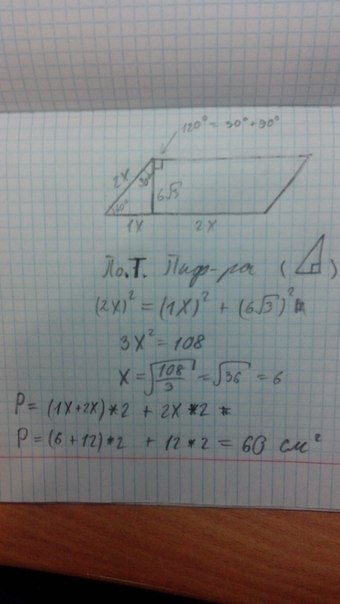 120° = 30° + 90°
2X
30°
60°
6√3
1X
2X
По.Т. Пифа-ра ( )
(2X)² = (1X)² + (6√3)²
3X² = 108
X = √108/3 = √36 = 6
P = (1X+2X)*2 + 2X*2
P = (6+12)*2 + 12*2 = 60 см²